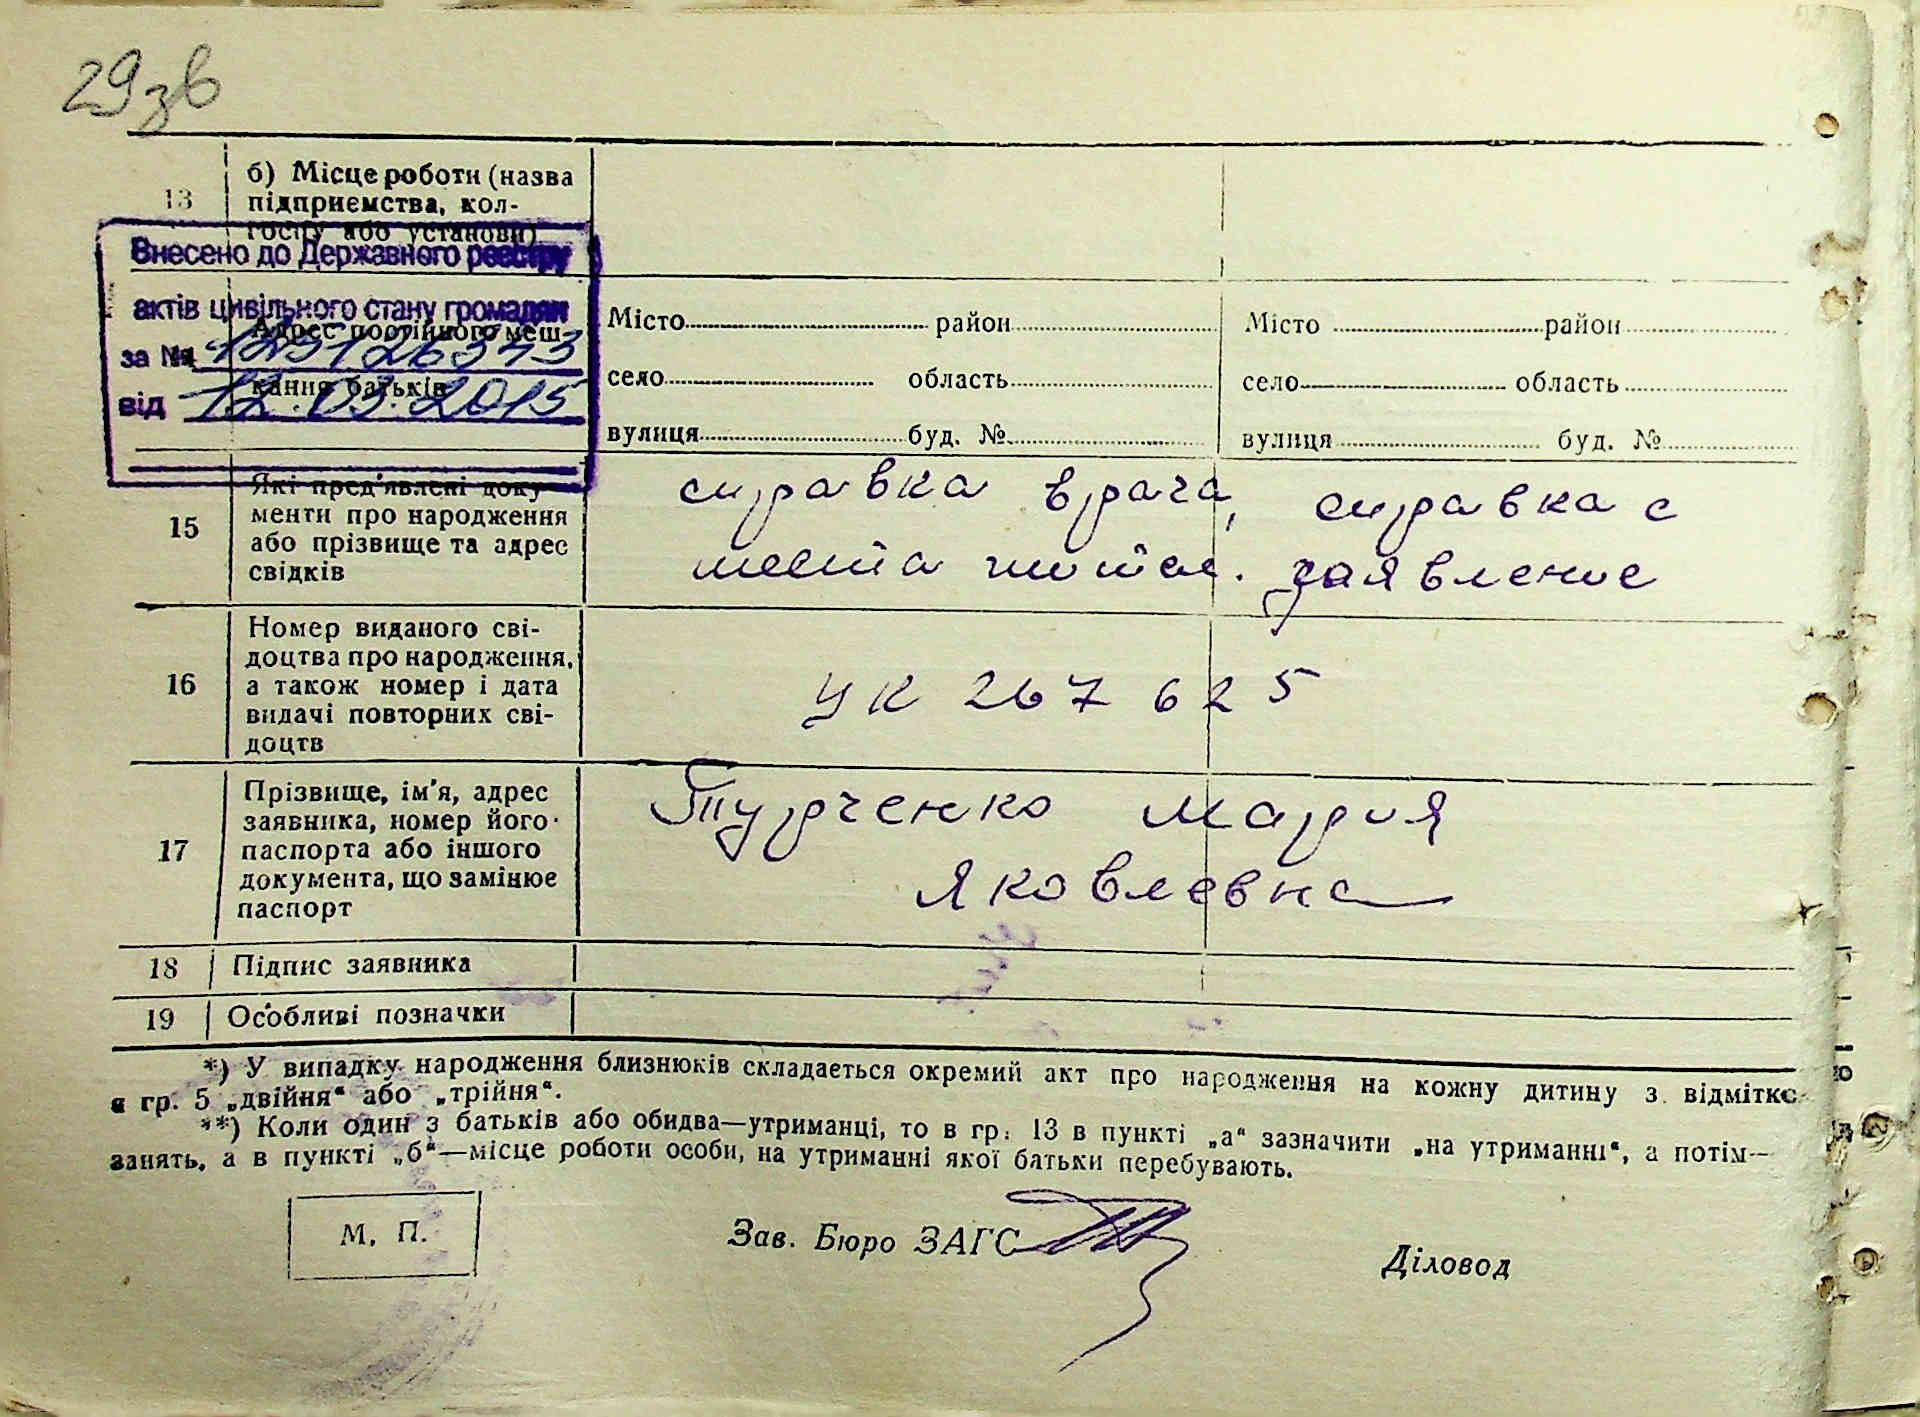 29зв
13
б) Місце роботи (назва
підприємства, кол-
госпу або установи)
Внесено до Державного реєстру
актів цивільного стану громадян
за №
від 12.03.2015
Адрес постійного меш-
кання батьків
Місто район
село область
вулиця буд. №
Місто район
село область
вулиця буд. №
15
Які пред'явлені доку-
менти про народження
або прізвище та адрес
свідків
справка врача, справка с
места жител. заявление
16
Номер виданого сві-
доцтва про народження,
а також номер і дата
видачі повторних сві-
доцтв
УК 267625
17
Прізвище, ім'я, адрес
заявника, номер його
паспорта або іншого
документа, що замінює
паспорт
Турченко Мария
Яковлевна
18 Підпис заявника
19 Особливі позначки
*) У випадку народження близнюків складається окремий акт про народження на кожну дитину з відмітко
в гр. 5 „двійня“ або „трійня“.
**) Коли один з батьків або обидва—утриманці, то в гр. 13 в пункті „а“ зазначити „на утриманні“, а потім—
занять, а в пункті „б“—місце роботи особи, на утриманні якої батьки перебувають.
М. П.
Зав. Бюро ЗАГС
Діловод